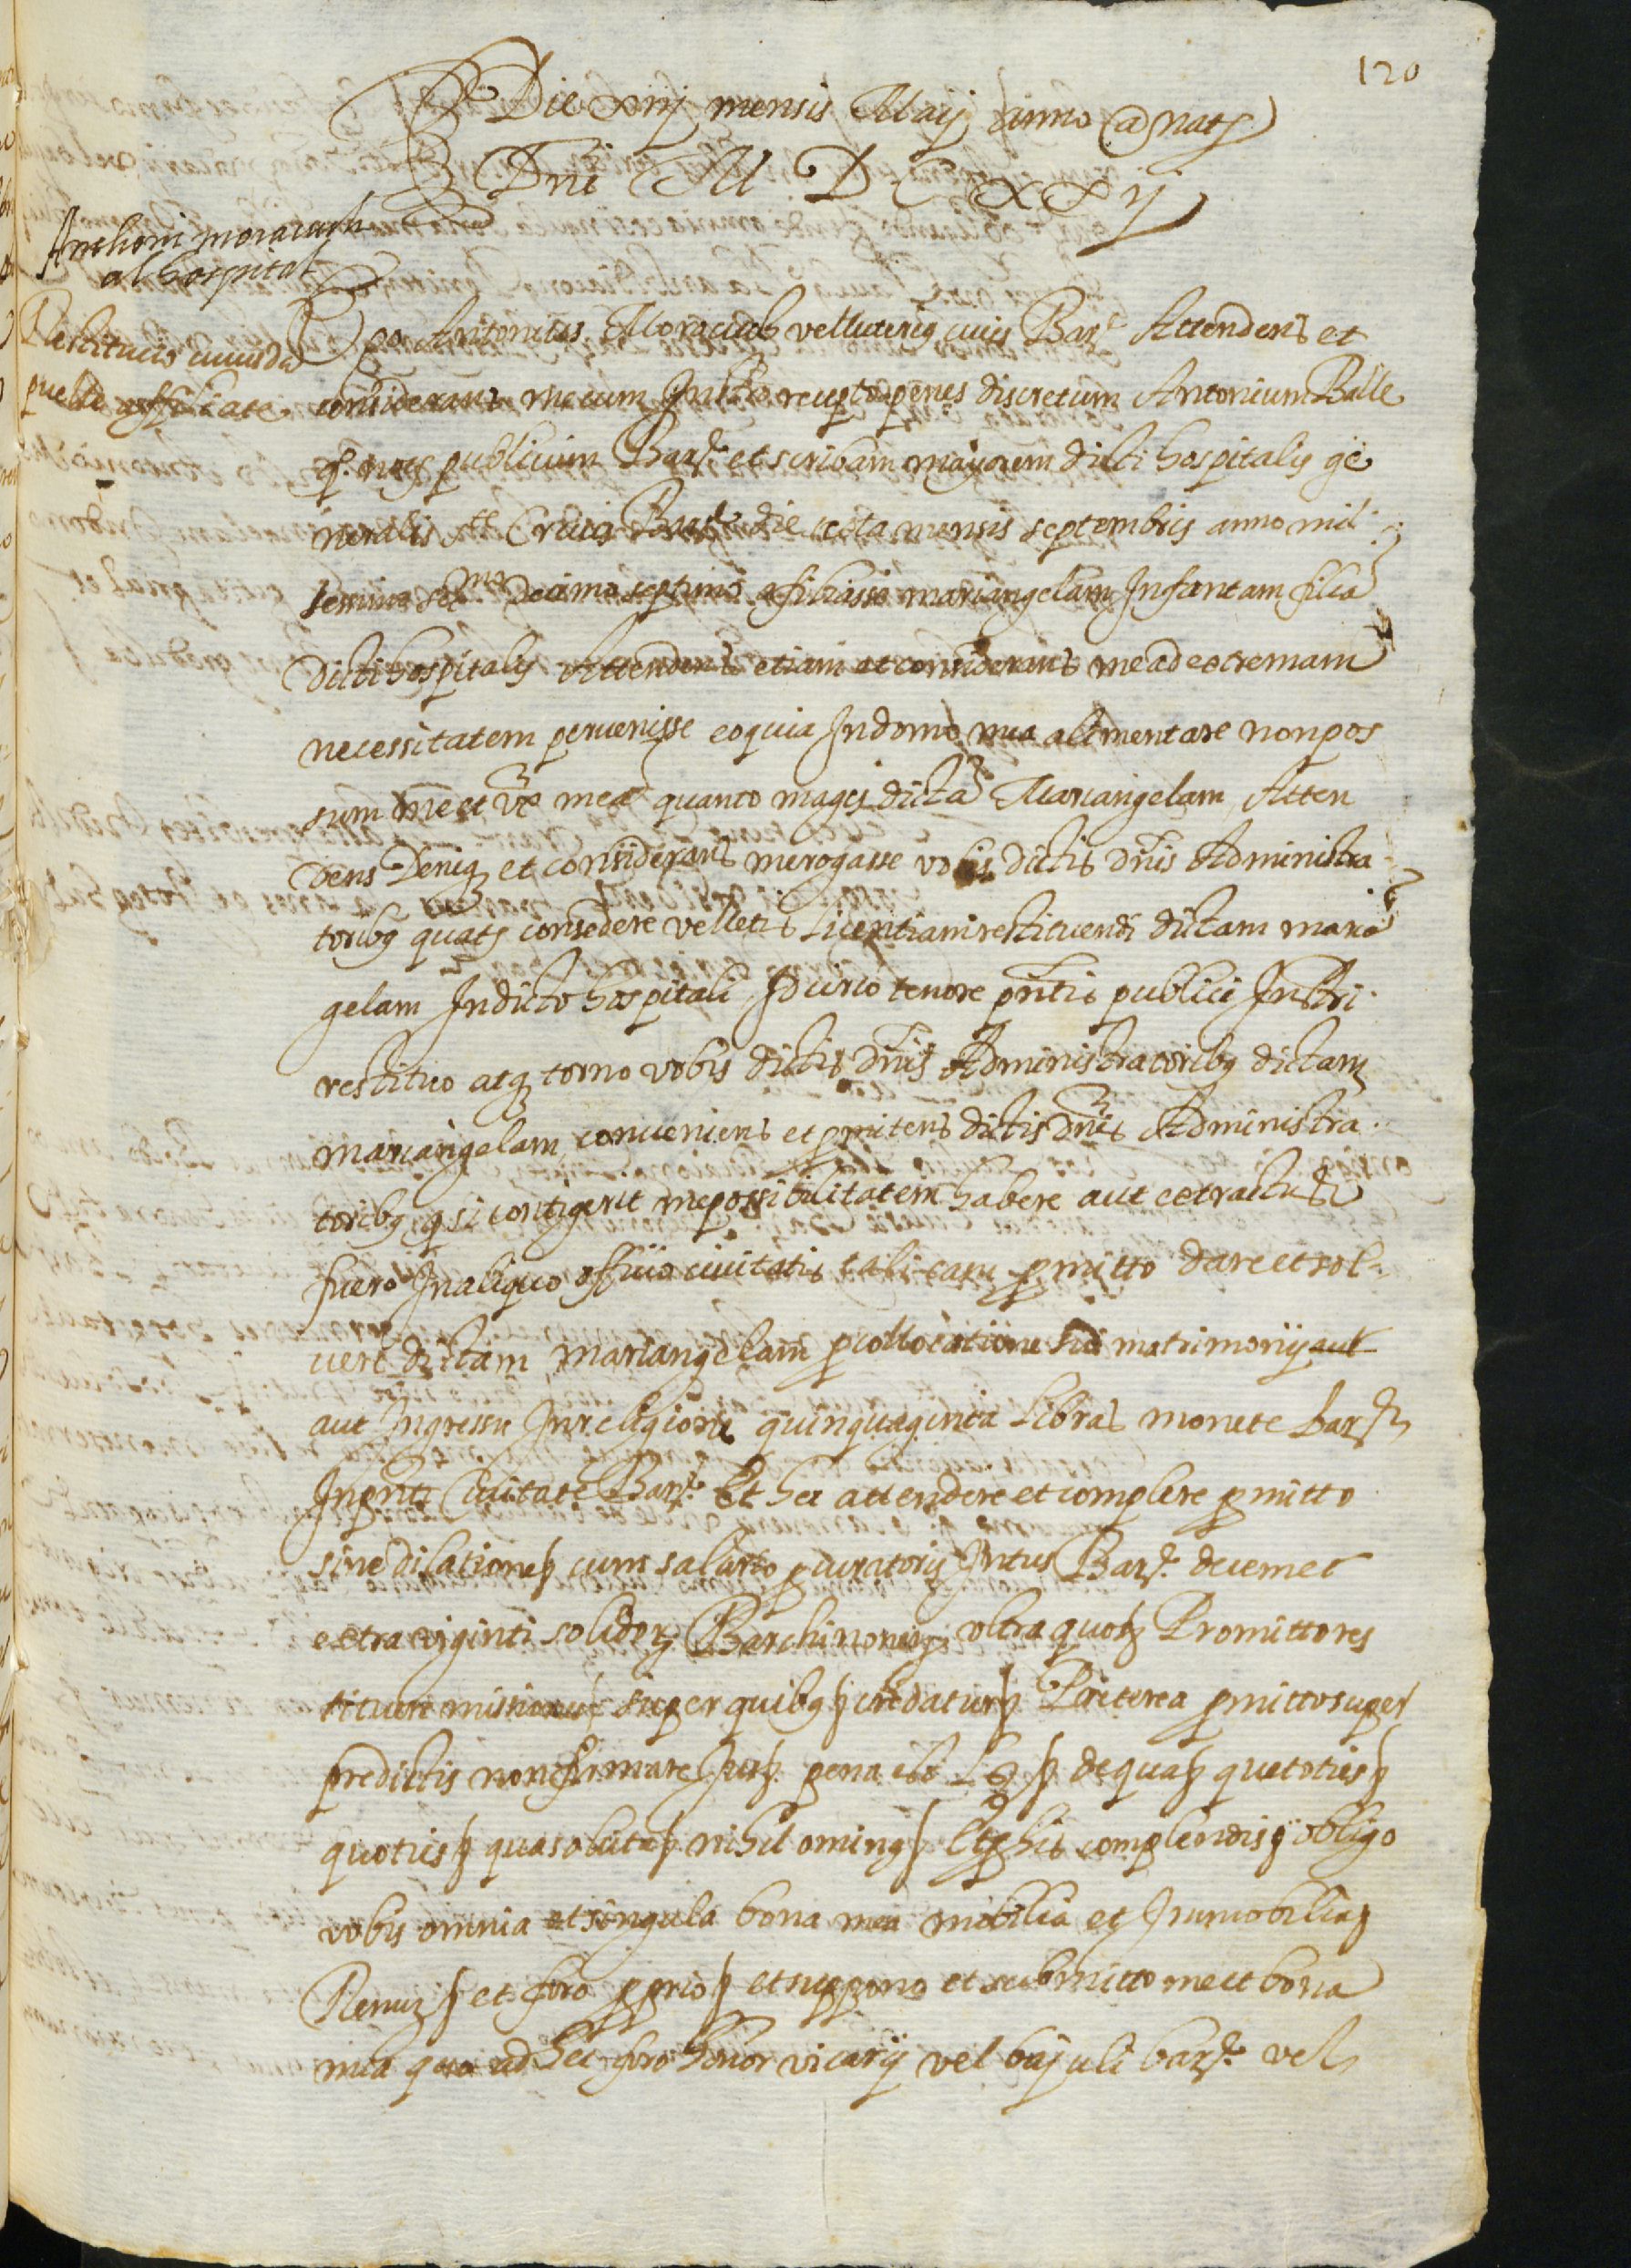 120
Die xviij mensis Maij anno a naty
Dni M D C xxij
Anthoni moracuch
al hospital
Restitucio cuiusdā
puelle affiliate
Ego Antonius Moracuch velluterius civis Barñe Attendens et
considerans me cum Instro recepto penes discretum Antonium Batlle
q. noty publicum Barñe et scribam mayorem dicti hospitalis ge
neralis Ste Crucis Barñe die octa mensis septembris anno mil
lessimo sexmo decimo septimo afiliasse mariangelam Infantam filiā
dicti hospitalis Attendens etiam et considerans me ad extremam
necessitatem pervenisse eo quia In domo mea alimentare non pos
sum me et ux̄ meā quanto magis dictā Mariangelam, Atten
dens Deniq et considerans me rogasse vobis dictis dnis Administra
toribꝯ quatꝯ consedere velletis licentiam restituendi dictam mariā
gelam In dicto hospitali, Id circo tenore pntis publici Instri
restituo atq torno vobis dictis dnis Administratoribꝯ dictam
mariangelam, conveniens et pmitens dictis dnis Administra
toribꝯ q si contigerit me possibilitatem habere aut extractus
fuero In aliquo officio civitatis tali casu pmitto dare et sol
vere dictam mariangelam p collocatione sui matrimonij aut
aut Ingressu In religione quinquaginta libras monete Barñe
In pnti Civitate Barñe Et hec attendere et complere pmitto
sine dilatione cum salario pcuratoris Intus Barñe decem et
extra viginti solidorꝝ Barchinonen ultra quos Promitto res
tituere missiones super quibꝯ credatur Preterea pmitto super
predictis non firmare Jus pena de qua que toties
quoties qua soluta nihilominꝯ Et p his complendis obligo
vobis omnia et singula bona mea mobilia et Inmobilia
Renun et foro pprio et suppono et submitto me et bona
mea quo ad hec foro honor vicarij vel bajuli barñe vel